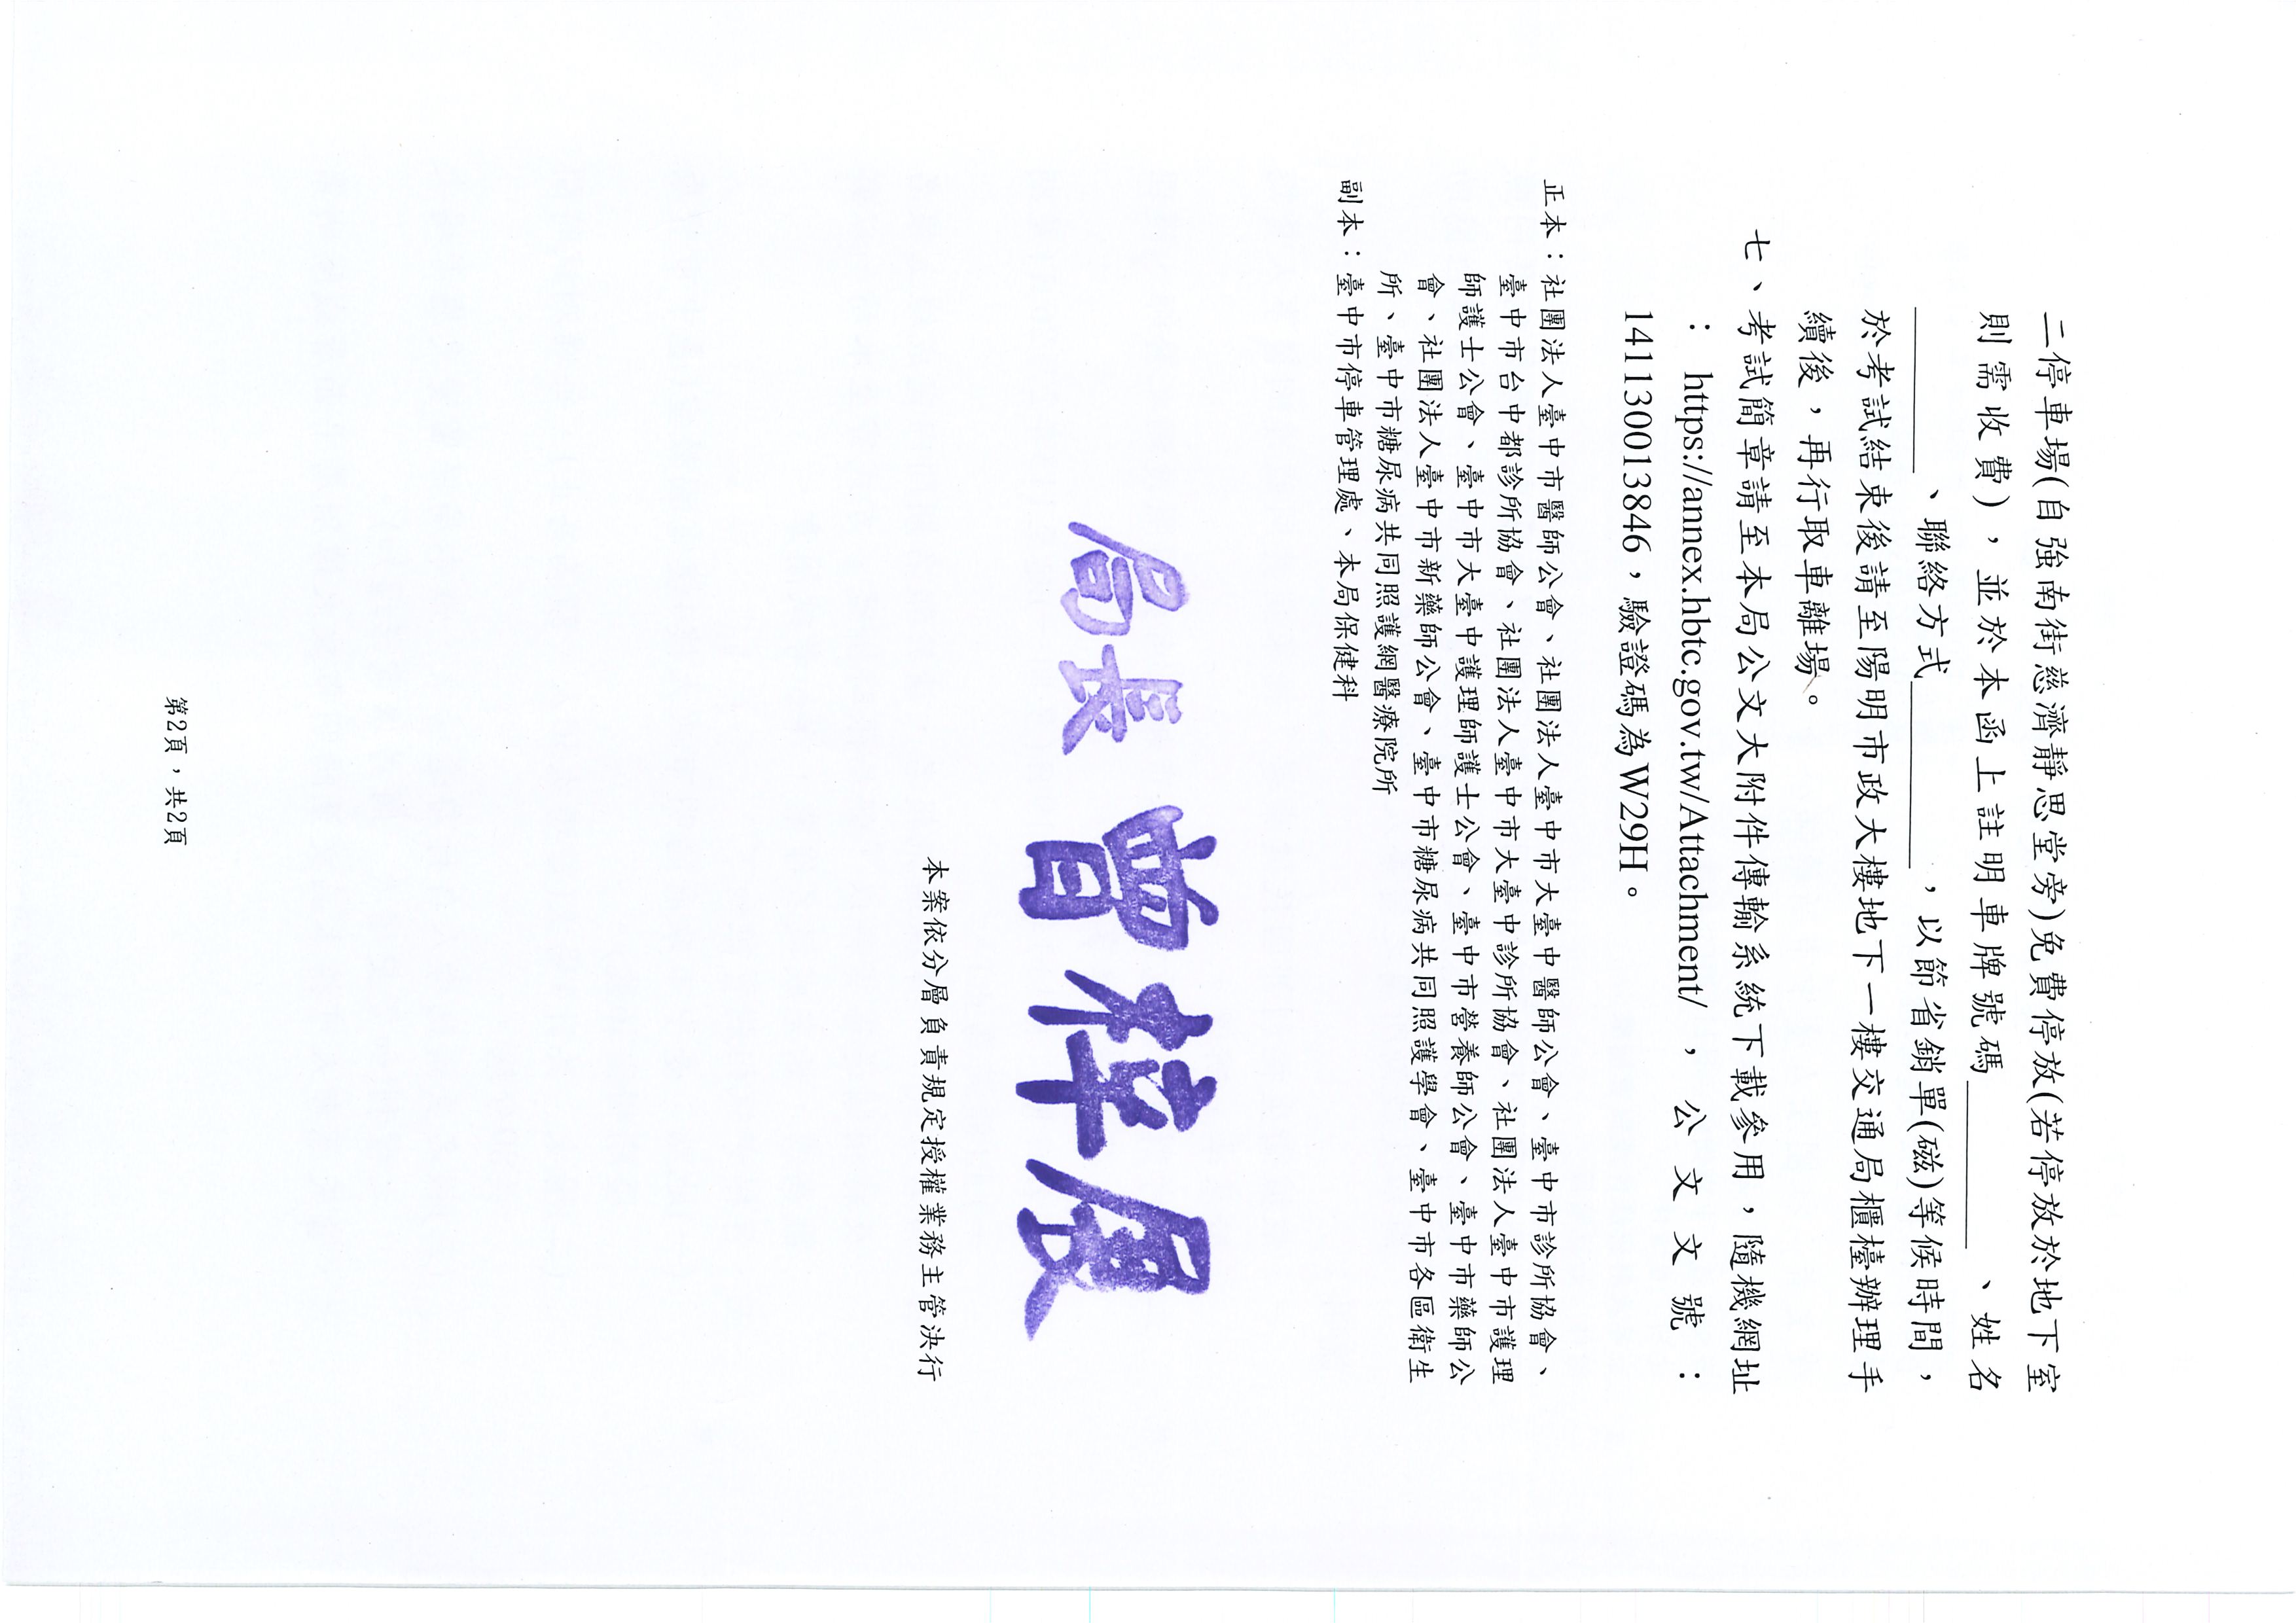 二停車場(自強南街慈濟靜思堂旁)免費停放(若停放於地下室
則需收費)，並於本函上註明車牌號碼__________、姓名
__________、聯絡方式__________，以節省銷單(磁)等候時間，
於考試結束後請至陽明市政大樓地下一樓交通局櫃檯辦理手
續後，再行取車離場。
七、考試簡章請至本局公文大附件傳輸系統下載參用，隨機網址
：https://annex.hbtc.gov.tw/Attachment/，公文文號：
141130013846，驗證碼為W29H。
正本：社團法人臺中市醫師公會、社團法人臺中市大臺中醫師公會、臺中市診所協會、
臺中市台中都診所協會、社團法人臺中市大臺中診所協會、社團法人臺中市護理
師護士公會、臺中市大臺中護理師護士公會、臺中市營養師公會、臺中市藥師公
會、社團法人臺中市新藥師公會、臺中市糖尿病共同照護學會、臺中市各區衛生
所、臺中市糖尿病共同照護網醫療院所
副本：臺中市停車管理處、本局保健科
局長 曾梓展
本案依分層負責規定授權業務主管決行
第2頁，共2頁